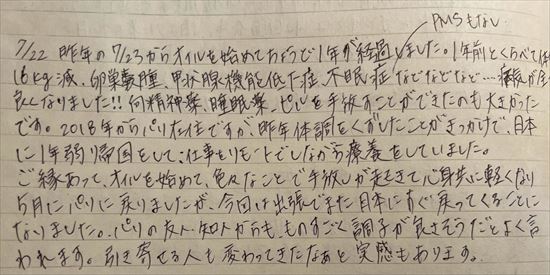 PMSもない
7/22 昨年の7/23からオイルを始めてちょうど1年が経過しました。1年前とくらべて体
16kg減、卵巣嚢腫、甲状腺機能低下症、不眠症などなどなど…
良くなりました!! 何精神薬、睡眠薬、ピルを手放すことができたのも大きかった
です。2018年からパリ在住ですが、昨年体調をくずしたことがきっかけで、日本
に1年弱り帰国をして、仕事をリモートでしながら療養をしていました。
ご縁あって、オイルを始めて、色々なことで手放しが起きて心身共に軽くなり
5月にパリに戻りましたが、今回は出張でまた日本にすぐ戻ってくることに
なりました。パリの友人・知人からも、ものすごく調子が良さそうだとよく言
われます。引き寄せる人も変わってきたなぁと実感もあります。